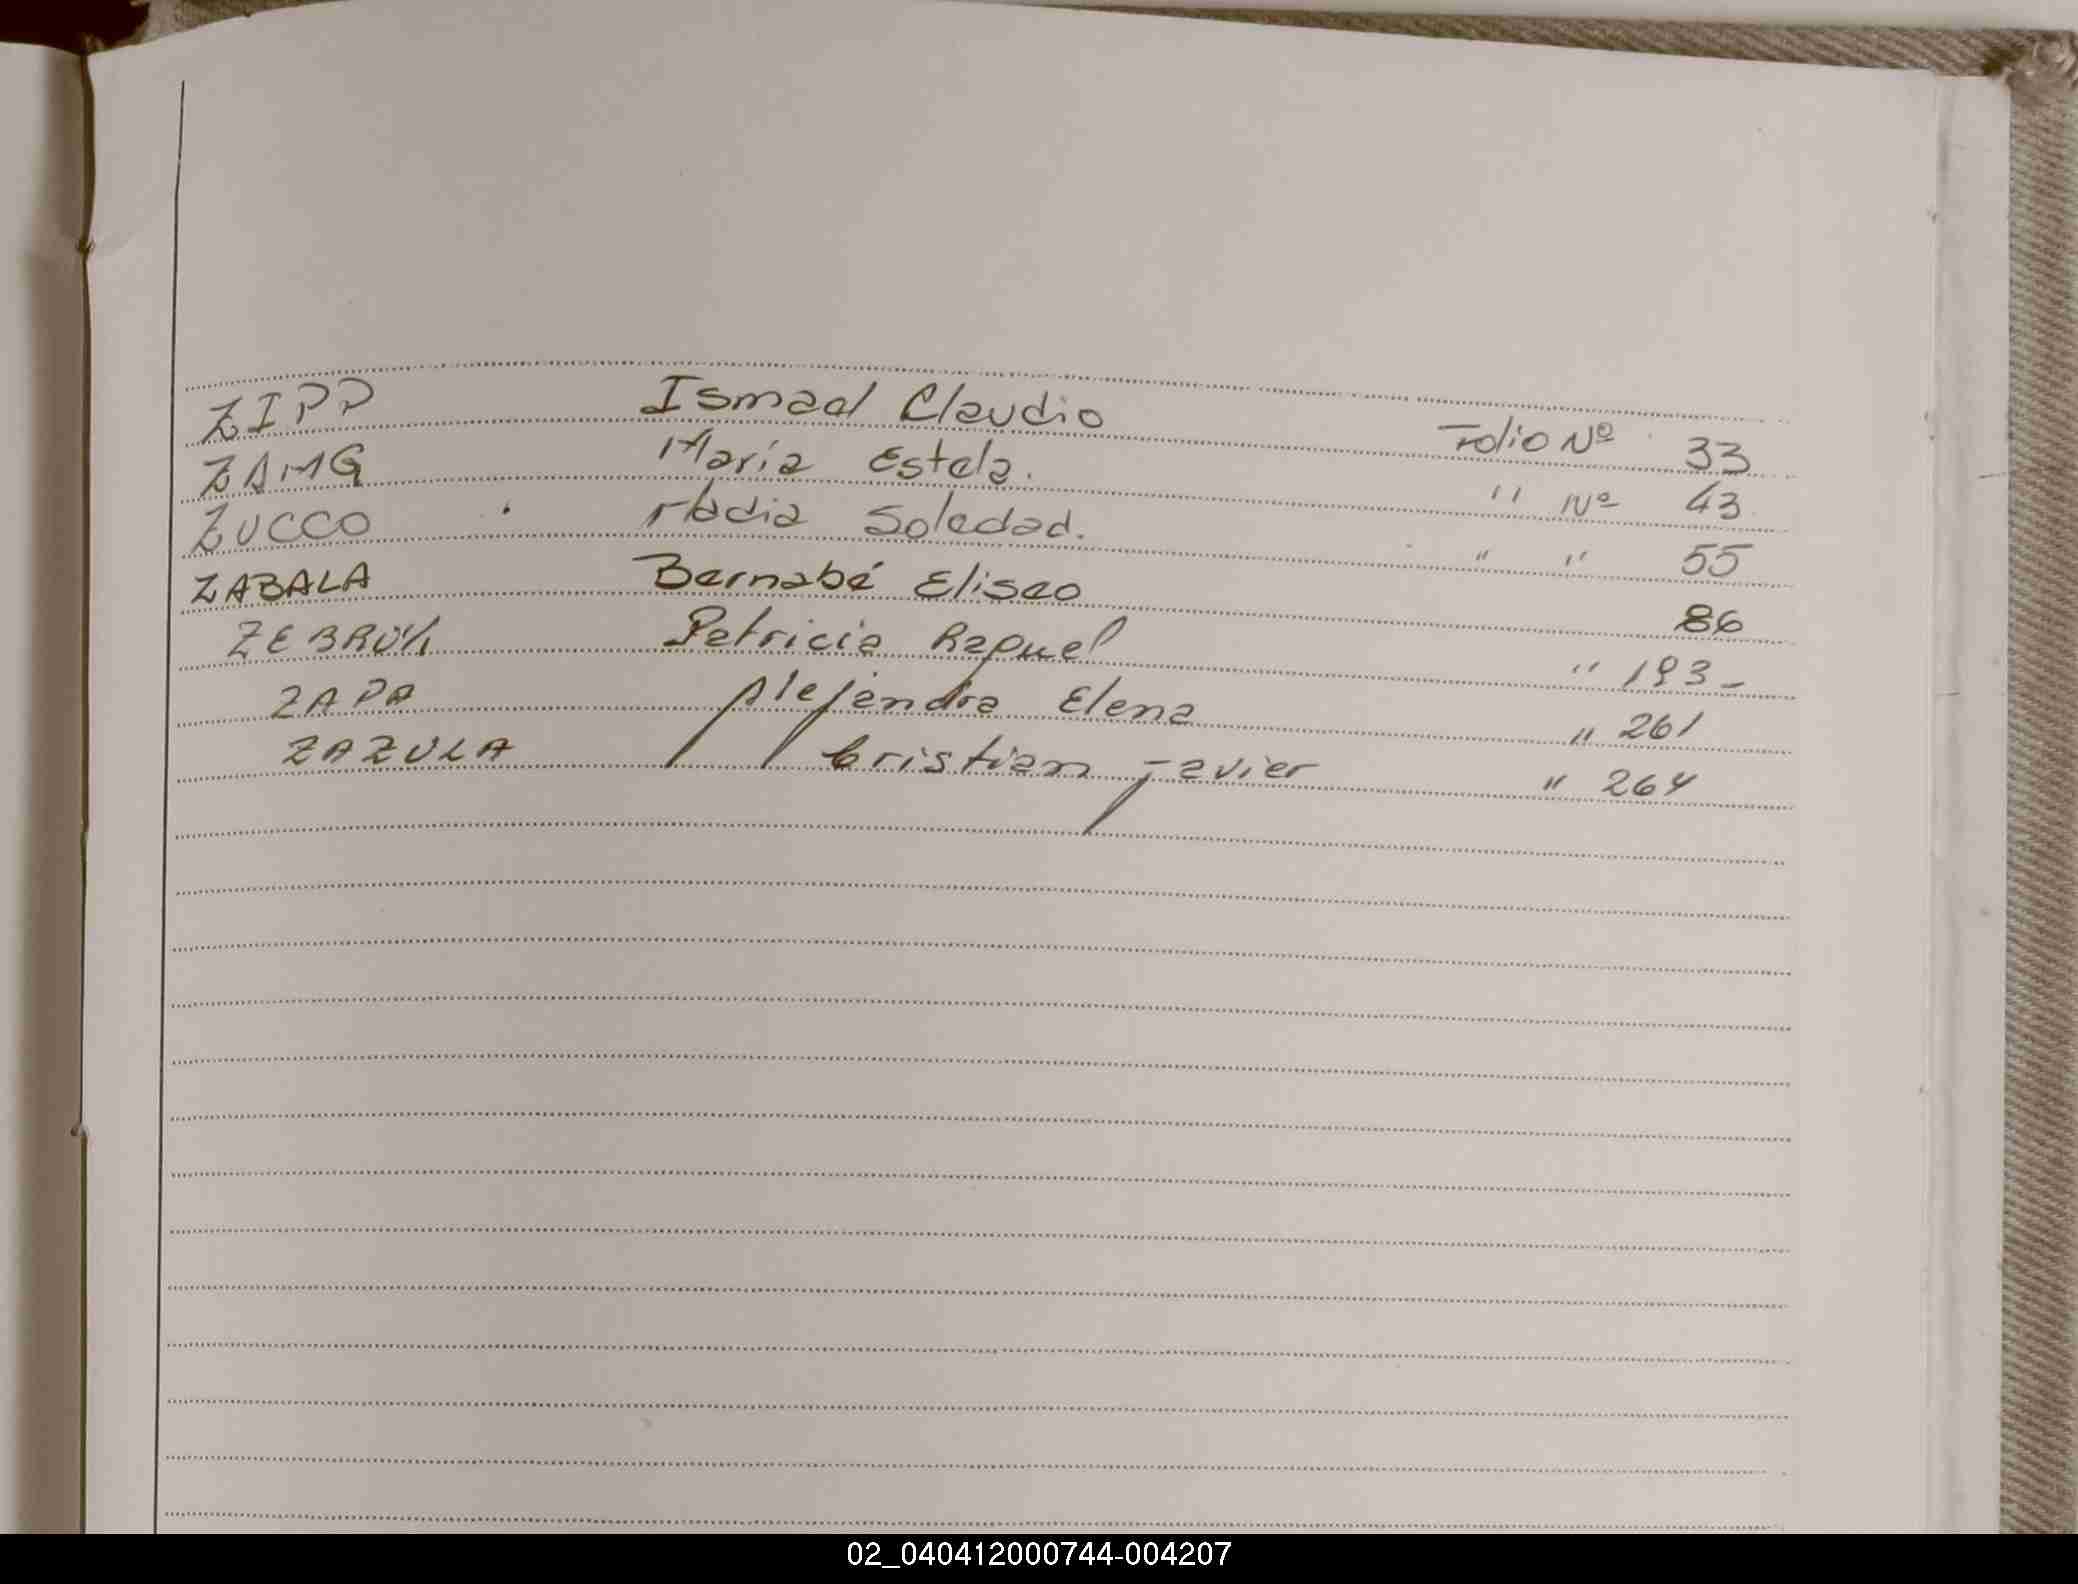 ZIPP Ismael Claudio Folio Nº 33
ZAMG María Estela. " Nº 43
ZUCCO Nadia Soledad. " " 55
ZABALA Bernabé Eliseo 86
Patricia Raquel " 193-
ZAPA Alejandra Elena " 261
ZAZULA Cristian Javier " 264
02_040412000744-004207